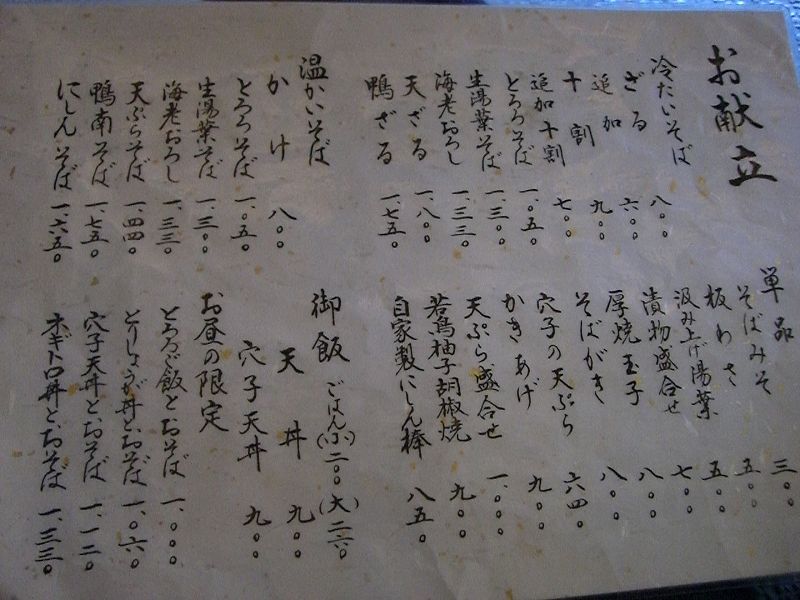 お献立
冷たいそば
ざる 八〇〇
追加 六〇〇
十割 九〇〇
追加十割 七〇〇
とろろそば 一、〇五〇
生湯葉そば 一、三〇〇
海老おろし 一、三三〇
天ざる 一、八〇〇
鴨ざる 一、七五〇
温かいそば
かけ 八〇〇
とろろそば 一、〇五〇
生湯葉そば 一、三〇〇
海老おろし 一、三三〇
天ぷらそば 一、四四〇
鴨南そば 一、七五〇
にしんそば 一、六五〇
単品
そばみそ 三〇〇
板わさ 五〇〇
汲み上げ湯葉 五〇〇
漬物盛合せ 七〇〇
厚焼玉子 八〇〇
そばがき 八〇〇
穴子の天ぷら 六四〇
かきあげ 九〇〇
天ぷら盛合せ 一、〇〇〇
若鳥柚子胡椒焼 九〇〇
自家製にしん棒 八五〇
御飯 ごはん(小)二〇〇 (大)二六〇
天丼 九〇〇
穴子天丼 九〇〇
お昼の限定
とろろご飯とおそば 一、〇〇〇
とりしょうが丼とおそば 一、〇六〇
穴子天丼とおそば 一、一二〇
ネギトロ丼とおそば 一、三三〇